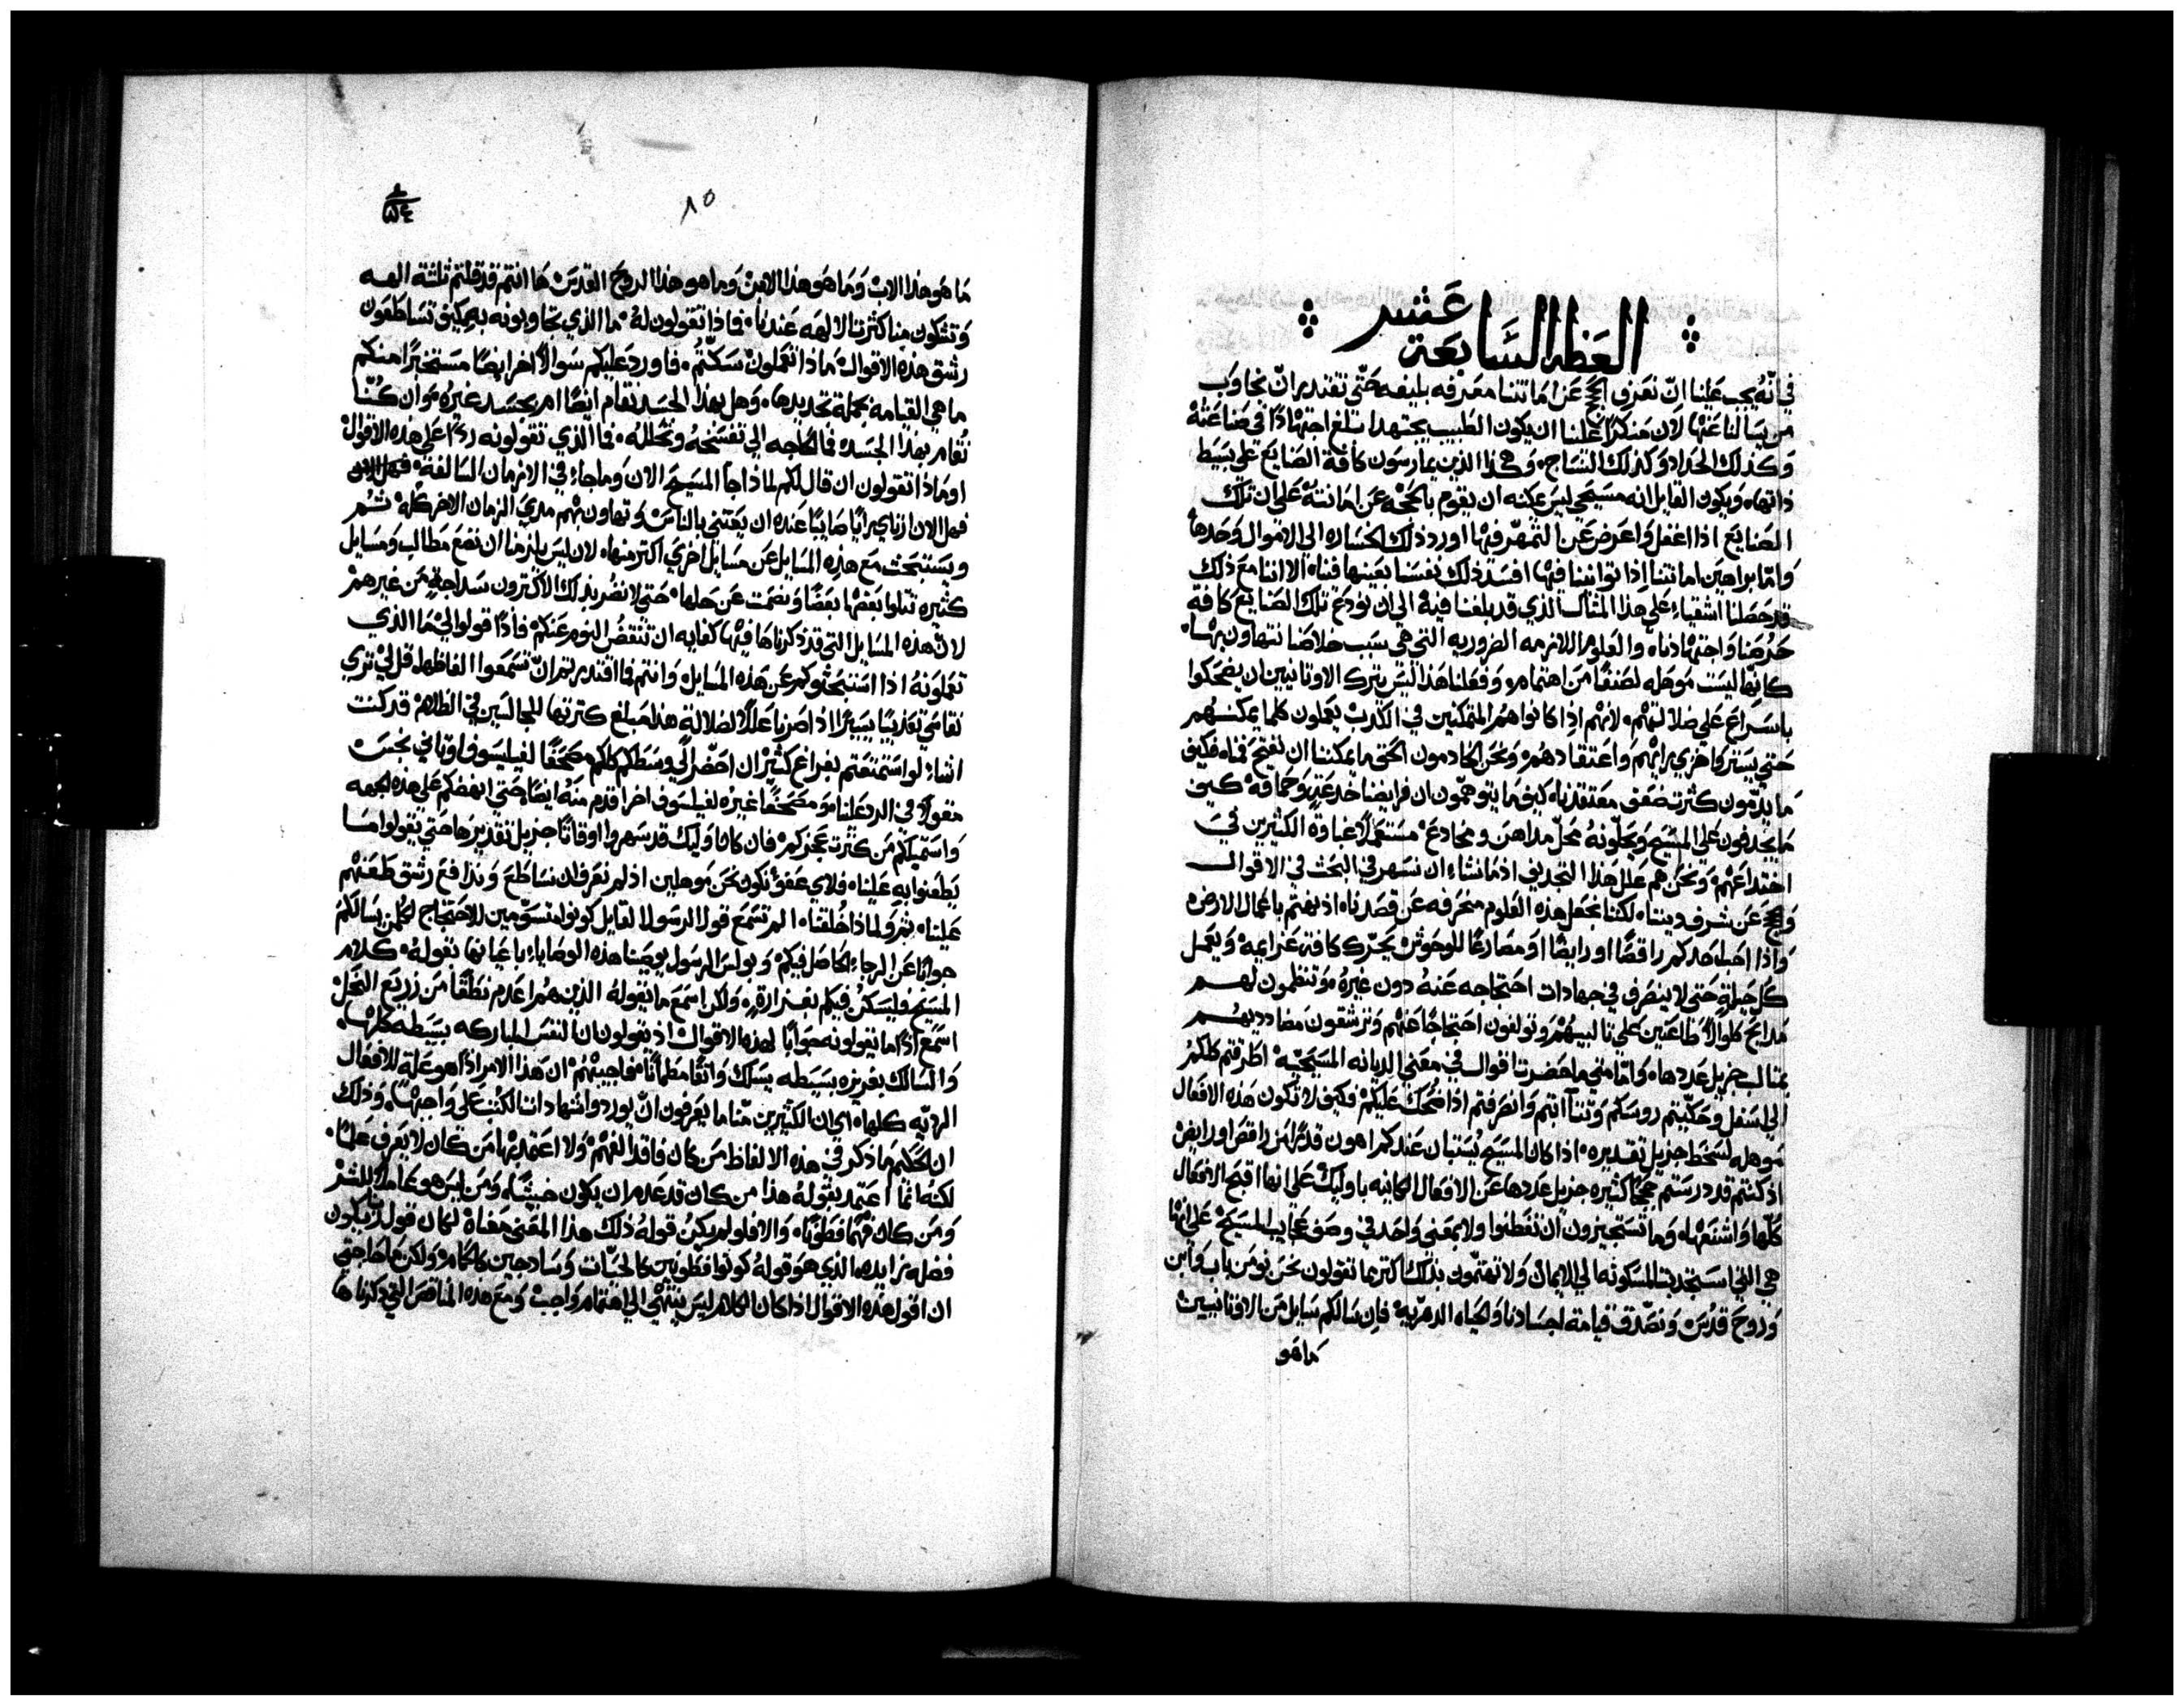 العظه السابعة عشر
في انّه يجب علينا انّ نعرف الحجج عن اماتتنا معرفه بليغه حتّي نقتدير انّ نجاوب
من يسالنا عنها لان منكرًا علينا ان يكون الطبيب يجتهد ابلغ اجتهادًا في صناعته
وكذلك الحداد وكذلك النساج. وهكذا الذين يمارسون كافة الصنايع علي بسيط
ذاتها. ويكون القايل انه مسيحي ليس يمكنه ان يقوم بالحجه عن امانته علي ان تلك
الصنايع اذا اغفل واعرض عن التمهّر فيها اورد ذلك الخساره الي الاموال وحدها
وامّا براهين امانتنا اذا تواننا فيها افسد ذلك نفسنا بعينها فناه الا اننا مع ذلك
قد حصلنا اشقياء علي هذا المثال الذي قد بلغنا فيه الي ان نودع تلك الصنايع كافة
حرصنا واجتهادناه والعلوم اللازمه الضروريه التي هي سبب خلاصنا نتهاون بها.
كانها ليست موهله لصنفًا من اهتمامه وفعلنا هذا ليس يترك الاوتانيين ان يضحكوا
باسراع علي ضلالتهم. لانهم اذا كانوا هم المتمكنين في الكدب يعملون كلما يمكنهم
حتي يستروا خزي رايهم واعتقادهم ونحن الخادمون الحق ما يمكننا ان نفتح فمناه فكيف
ما يدمّون كثرت ضعف معتقدناه كيف ما يتوهمون ان فرايضنا خدعته وحماقه كيف
ما يجدفون علي المسيح ويحلّونه محلّ مداهن ومخادع مستعملاً غباوة الكثيرين في
اختداعهم ونحن هم علل هذا التجديف اذ مانشاء ان نسهر في البحث في الاقوال
والحجج عن شرف ديننا لكننا نجعل هذه العلوم منحرفه عن قصدناه اذ نهتم باعمال الارض
واذا احب احدكم راقصًا او رابضًا او مصارعًا للوحوش يحرّك كافة عزايمه ويعمل
كل حيلةٍ حتي لا ينصرف في جهادات احتجاجه عنه دون غيره وتنظمون لهم
مدايح طوالاً طاعنين علي ثالبيهم وتولفون احتجاجًا عنهم وترشقون مضادديهم
بمثالب جزيل عددها وامّا متي ما حضرت اقوال في معني الديانه المسيحيّه اطرقتم كلكم
الي اسفل وحكيتم روسكم وتثآابتم وانصرفتم اذا ضحك عليكم فكيف لا تكون هذه الافعال
موهله لسخط جزيل تقديره. اذا كان المسيح يستبان عندكم اهون قدرًا من راقص او رابض
اذ كنتم قد درستم حججًا كثيره جزيل عددها عن الافعال الكاينه باوليك علي انها اقبح الافعال
كلّها واشنعها. وما تستجيزون ان تفطنوا ولا بمعني واحد في وصف عجايب المسيح علي انها
هي التي استجدبت المسكونه الي الايمان ولا تهتمّون بذلك اكتر مما تقولون نحن نومن باب وابن
وروح قدس ونصدق قيامة اجسادنا والحياه الدهريه. فان سالكم سايل من الاوتانيين
ما هو
٨٥
ما هو هذا الاب وما هو هذا الابن وما هو هذا الروح القدس ها انتم قد قلتم ثلثة الهه
وتشكون منا كثرت الالهه عندنا. فماذا تقولون له. ما الذي تجاوبونه به كيف تساطعون
رشق هذه الاقوال ماذا تعملون سكتّم. فاورد عليكم سوالاً اخر ايضًا مستخبرًا منكم
ما هي القيامه بجملة تحديدها. وهل بهذا الجسد نقام ايضًا ام بجسد غيره وان كنّا
نقام بهذا الجسد فما الحاجه الي تفسّخه وتحلله. فما الذي تقولونه ردًا علي هذه الاقوال
او ماذا تقولون ان قال لكم لماذا جآ المسيح الان وما جاء في الازمان السالفة.
فهل الان ارتاي رايًا صايبًا عنده ان يعتني بالناس وتهاون بهم مدي الزمان الاخر كله ثم
ويستبحث مع هذه المسايل عن مسايل اخري اكتر منها. لان ليس يلزمنا ان نضع مطالب ومسايل
كثيره تتلوا بعضها بعضًا ونصمت عن حلها. حتي لا نضر بذلك الاكترون سداجة من غيرهم
لان هذه المسايل التي قد ذكرناها فيها كفايه ان تنتفض النوم عنكم. فاذًا قولوا لي ما الذي
تعملونه اذا استبحثوكم عن هذه المسايل. وانتم فما اقتدرتم انّ تسمعوا الفاظها. قل لي تري
نقاسي تعذيبًا يسيرًا اذا صرنا عللاً لضلالة هذا مبلغ كترتها للجالسين في الظلام قد كنت
اشاء لو استمتعتم بفراغ كثير ان احضر الي وسطكم كلكم مصحفًا لفيلسوف اوتاني نجس
مقولاً في الرد علينا ومصحفًا غيره لفيلسوف اخر اقدم منه ايضًا. حتي انهضكم علي هذه الجهه
واستميلكم من كثرت عجزكم. فان كان اوليك قد سهروا اوقاتًا جزيل تقديرها حتي يقولوا ما
يطعنوا به علينا. فلاي عفو نكون نحن موهلين اذ لم نعرف ان نساطع وندافع رشق طعنهم
علينا. ثم ولماذا خلقنا. الم تسمع قول الرسول القايل كونوا منسوّمين للاحتجاج لكلمن يسالكم
جوابًا عن الرجاء الحاصل فيكم. وبولس الرسول يوصينا هذه الوصاياء باعيانها بقوله. كلام
المسيح فليسكن فيكم بغزارةٍ. ولكن اسمع ما يقوله الذين هم اعدم نطقًا من زريع النحل
اسمع اذًا ما يقولونه جوابًا لهذه الاقوال اذ يقولون ان النفس المباركه بسيطه كلها.
والسالك بغريزه بسيطه يسلك واثقًا مطمانًا فاجيبهم ان هذا الامر اذًا هو علة للافعال
الرديّه كلها. اي ان الكثيرين منّا ما يعرفون انّ يوردوا شهادات الكتب علي واجبها. وذلك
ان الحكيم ما ذكر في هذه الالفاظ من كان فاقد الفهم. ولا اعتمد بها من كان لا يعرف علمًا.
لكنه انما اعتمد بقوله هذا من كان قد عدم ان يكون خبيثًا. ومن ليس هو عاملاً للشر
ومن كان فهمًا فطونًا. والا فلو لم يكن قوله ذلك هذا المعني معناه لكان قولاً يكون
فضله زايده الذي هو قوله كونوا فطونين كالحيّات وساذجين كالحمام. ولكن ما حاجتي
ان اقول هذه الاقوال اذا كان الكلام ليس ينتهي الي اهتمام واجب ومع هذه المناقص التي ذكرناها